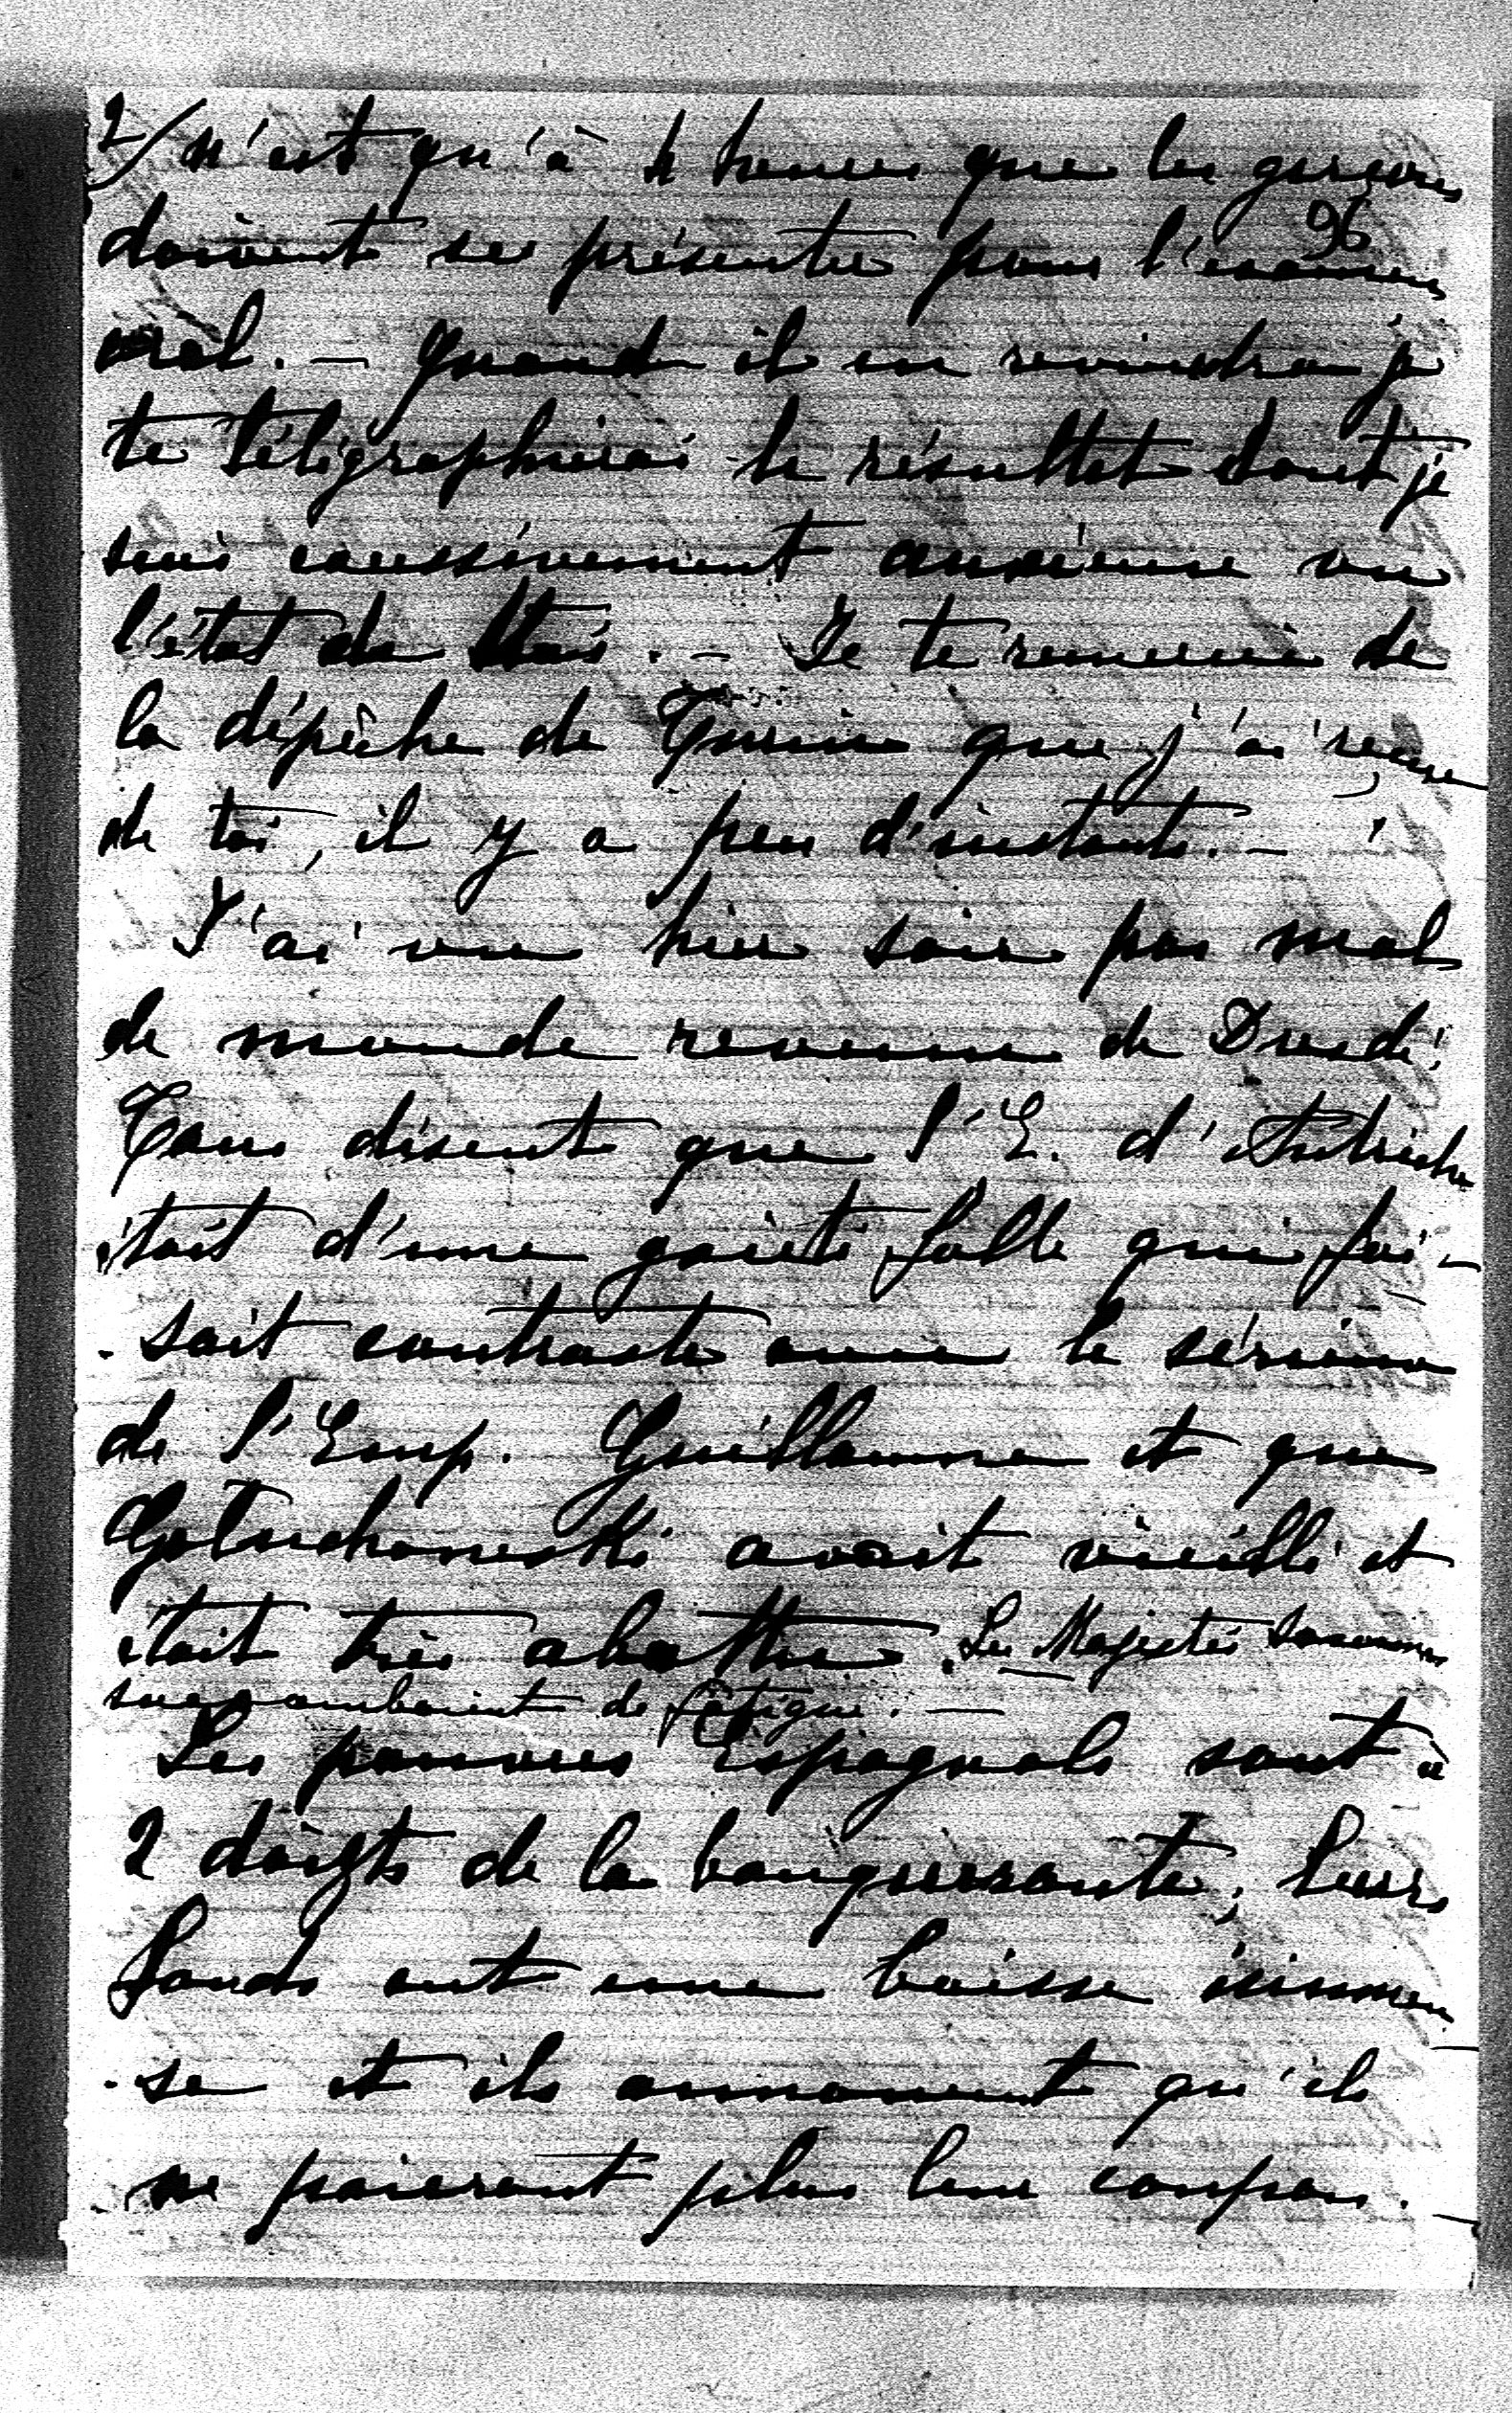 2/ n'est qu'à 4 heures que les garçons
96
doivent se présenter pour l'examen
oral. — Quand il en reviendra je
te télégraphierai le résultat dont je
suis excessivement anxieuse vu
l'état de . — Je te remercie de
la dépêche de Turin que j'ai reçue
de toi, il y a peu d'instants. —
J'ai vu hier soir pas mal
de monde revenu de Dresde.
Tous disent que l'E. d'Autriche
était d'une gaieté folle qui fai-
-sait contraste avec le sérieux
de l'Emp. Guillaume et que
Goluchowski avait vieilli et
était très abattu. Les Majestés Saxonnes
succombaient de fatigue. —
Les pauvres Espagnols sont à
2 doigts de la banqueroute, leurs
fonds ont une baisse immen-
-se et ils annoncent qu'ils
ne paieront plus leur coupon. —